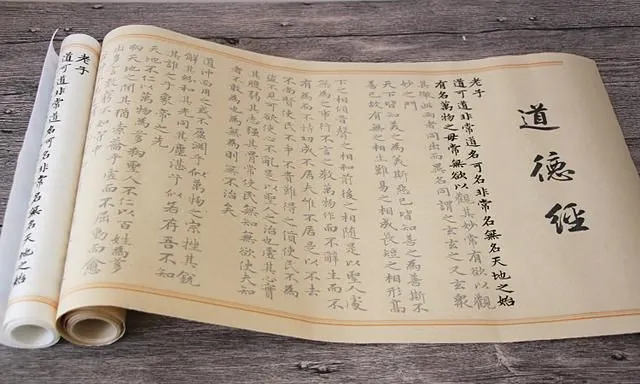 道德經
老子
道可道非常道名可名非常名無名天地之始
有名萬物之母常無欲以觀其妙常有欲以觀
其徼此兩者同出而異名同謂之玄玄之又玄衆
妙之門
天下皆知美之為美斯惡已皆知善之為善斯不
善已故有無之相生難易之相成長短之相形高
下之相傾音聲之相和前後之相隨是以聖人處
無為之事行不言之教萬物作而不辭生而不
有為而不恃功成不居夫唯不居是以不去
不尚賢使民不爭不貴難得之貨使民不為
盜不見可欲使心不亂是以聖人之治也虛其心實
其腹弱其志強其骨常使民無知無欲使夫知
者不敢為也為無為則無不治矣
道沖而用之或不盈淵乎似萬物之宗挫其銳
解其紛和其光同其塵湛兮似若存吾不知
其誰之子象帝之先
天地不仁以萬物為芻狗聖人不仁以百姓為芻
狗天地之間其猶橐籥乎虛而不屈動而愈
出多言數窮不如守中
老子
道可道非常道名可名非常名無名天地之始